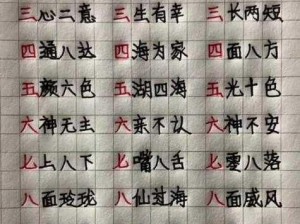 三心二意 三生有幸 三长两短
四通八达 四海为家 四面八方
五颜六色 五湖四海 五光十色
六神无主 六亲不认 六神不安
七上八下 七嘴八舌 七零八落
八面玲珑 八仙过海 八面威风